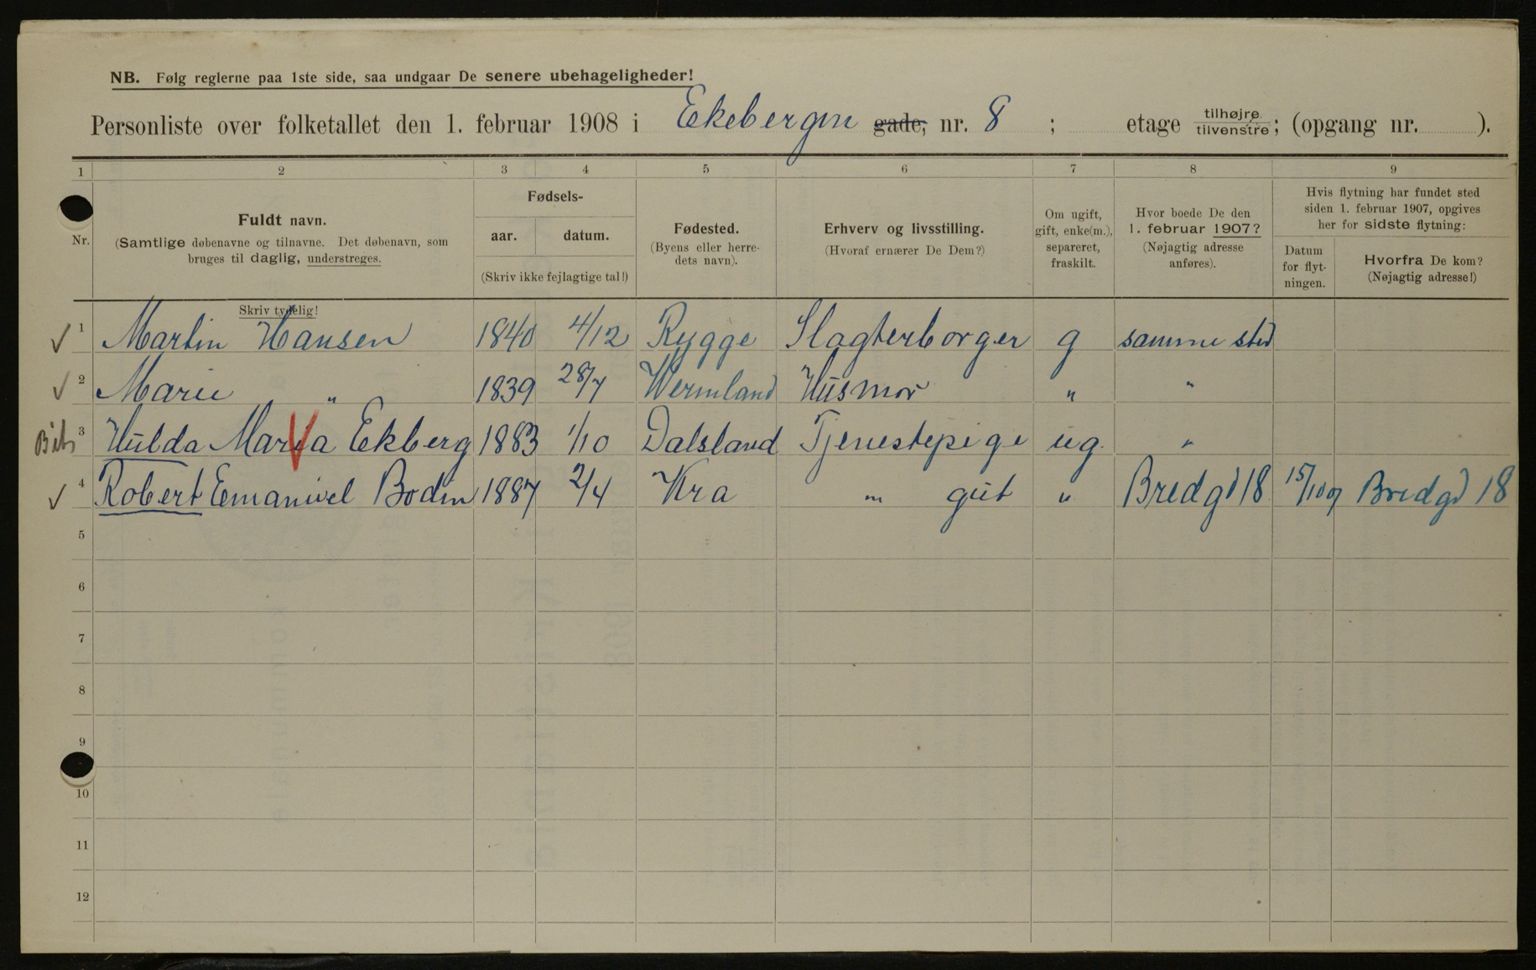 NB. Følg reglerne paa 1ste side, saa undgaar De senere ubehageligheder!
Personliste over folketallet den 1. februar 1908 i Ekebergvn gade, nr. 8 ; etage tilhøjre tilvenstre; (opgang nr. ).
1 2 3 4 5 6 7 8 9
Nr. Fuldt navn. (Samtlige døbenavne og tilnavne. Det døbenavn, som bruges til daglig, understreges.
Fødsels- aar. datum. (Skriv ikke fejlagtige tal!)
Fødested. (Byens eller herredets navn).
Erhverv og livsstilling. (Hvoraf ernærer De Dem?)
Om ugift, gift, enke(m.), separeret, fraskilt.
Hvor boede De den 1. februar 1907? (Nøjagtig adresse anføres).
Hvis flytning har fundet sted siden 1. februar 1907, opgives her for sidste flytning:
Datum for flytningen. Hvorfra De kom? (Nøjagtig adresse!)
Skriv tydelig!
1 Martin Hansen 1840 4/12 Rygge Slagterborger g samme sted
2 Marie " 1839 28/7 Wermland Husmor " "
3 Hulda Maria Ekberg 1883 1/10 Dalsland Tjenestepige ug. "
4 Robert Emanuel Bodin 1887 2/4 Kra " gut " Bredgd 18 15/10 07 Bredgd 18
5
6
7
8
9
10
11
12